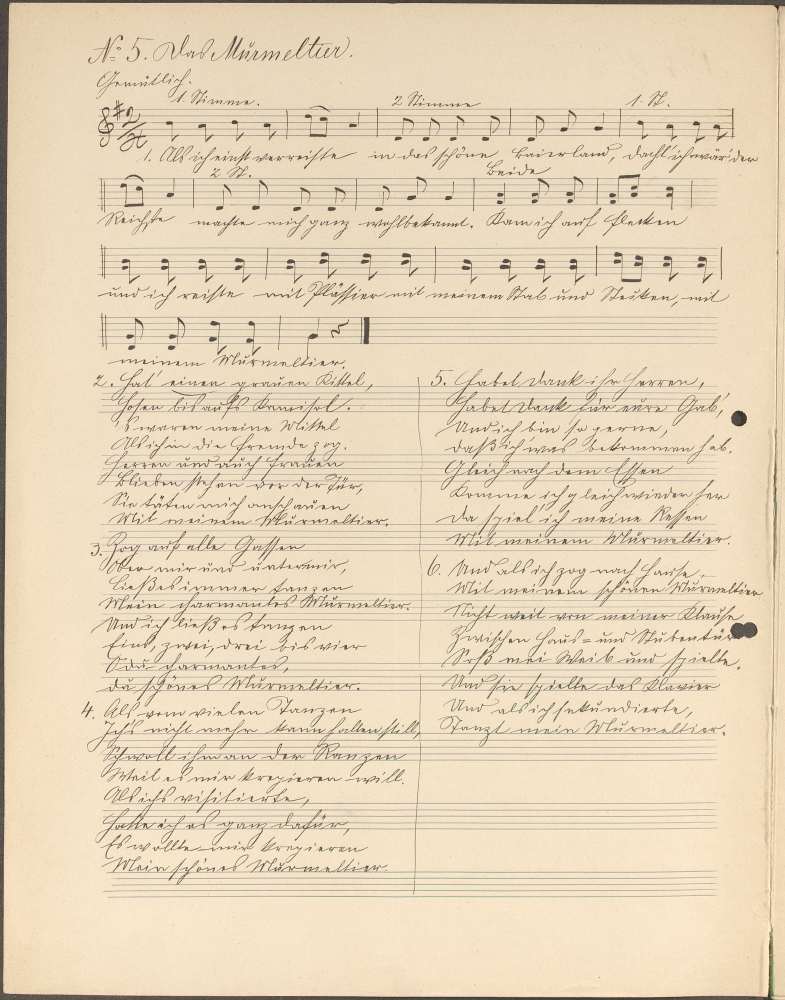 No 5. Das Murmeltier.
Gemütlich.
1. Stimme. 2 Stimme 1. St.
1. Als ich einst verreiste in das schöne Baierland, dacht ich wär' der
2. St. Beide
Reichste machte mich ganz wohlbekannt. Kam ich auf Flecken
und ich reiste mit Pläsier mit meinem Stab und Stecken, mit
meinem Murmeltier.
2. Hat' einen grauen Kittel,
Hosen bis aufs Kamisol.
's waren meine Mittel
Als ich in die Fremde zog.
Herren und auch Frauen
Blieben stehn vor der Tür,
Sie täten mich anschauen
Mit meinem Murmeltier.
3. Zog auf alle Gassen
Ober mir und unter mir,
Ließ es immer tanzen
Mein charmantes Murmeltier.
Und ich ließ es tanzen
Eins, zwei, drei bis vier
O du charmantes,
du schönes Murmeltier.
4. Als vom vielen Tanzen
Ich's nicht mehr kann halten still,
Schwoll ihm an der Ranzen
Weil es mir krepieren will.
Als ichs visitierte,
Hatte ich es ganz dafür,
Es wollte mir krepieren
Mein schönes Murmeltier.
5. Habet Dank ihr Herren,
Habet Dank für eure Gab',
Und ich bin so gerne,
daß ich was bekommen hab.
Gleich nach dem Essen
Komme ich gleich wieder her
Da spiel' ich meine
Mit meinem Murmeltier.
6. Und als ich zog nach Hause,
Mit meinem schönen Murmeltier
Nicht weit von meiner Klause
Zwischen Haus- und Stubentür
Saß mei Weib und spielte,
Und sie spielte das Klavier
Und als ich sekundierte,
Tanzt mein Murmeltier.